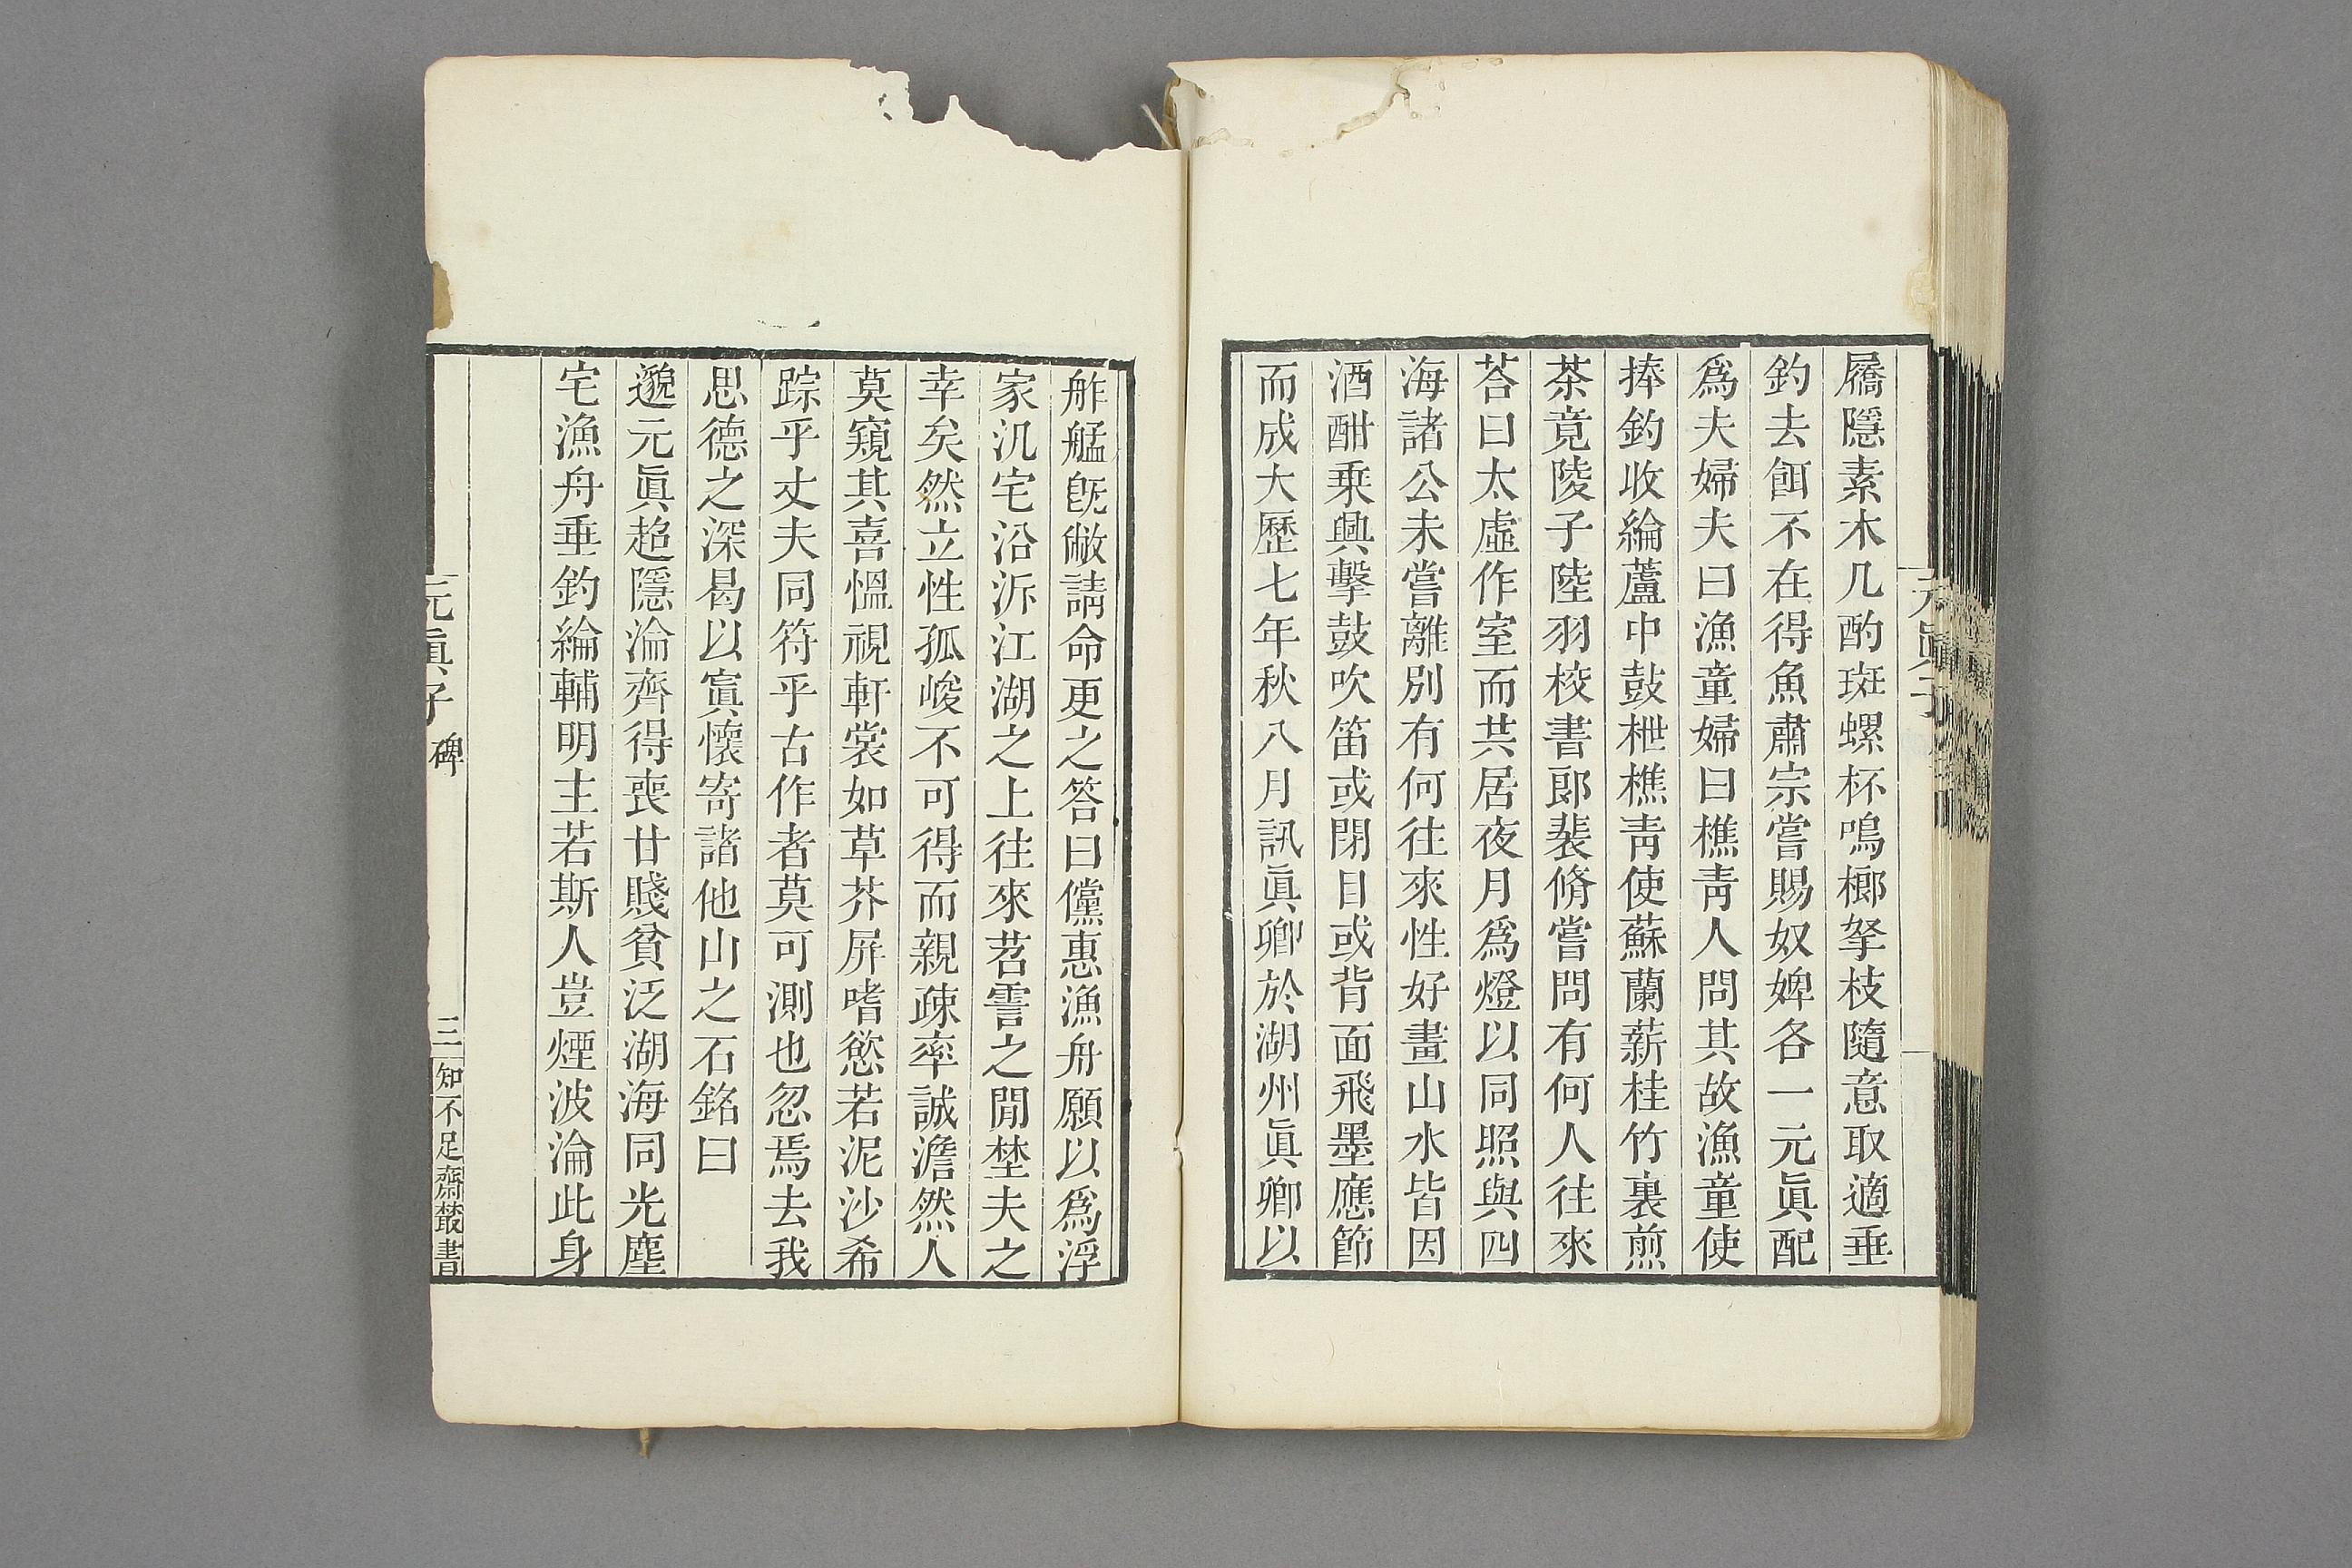 屩隱素木几酌斑螺杯鳴榔拏枝隨意取適垂
釣去餌不在得魚肅宗嘗賜奴婢各一元眞配
爲夫婦夫曰漁童婦曰樵靑人問其故漁童使
捧釣收綸蘆中鼓枻樵靑使蘇蘭薪桂竹裏煎
茶竟陵子陸羽校書郎裴脩嘗問有何人往來
荅曰太虛作室而共居夜月爲燈以同照與四
海諸公未嘗離別有何往來性好畫山水皆因
酒酣乘興擊鼓吹笛或閉目或背面飛墨應節
而成大歷七年秋八月訊眞卿於湖州眞卿以
舴艋旣敝請命更之答曰儻惠漁舟願以爲浮
家汎宅沿泝江湖之上往來苕霅之閒埜夫之
幸矣然立性孤峻不可得而親疎率誠澹然人
莫窺其喜慍視軒裳如草芥屏嗜慾若泥沙希
踪乎丈夫同符乎古作者莫可測也忽焉去我
思德之深曷以寘懷寄諸他山之石銘曰
邈元眞超隱淪齊得喪甘賤貧泛湖海同光塵
宅漁舟垂釣綸輔明主若斯人豈煙波淪此身
元眞子 碑
三
知不足齋叢書